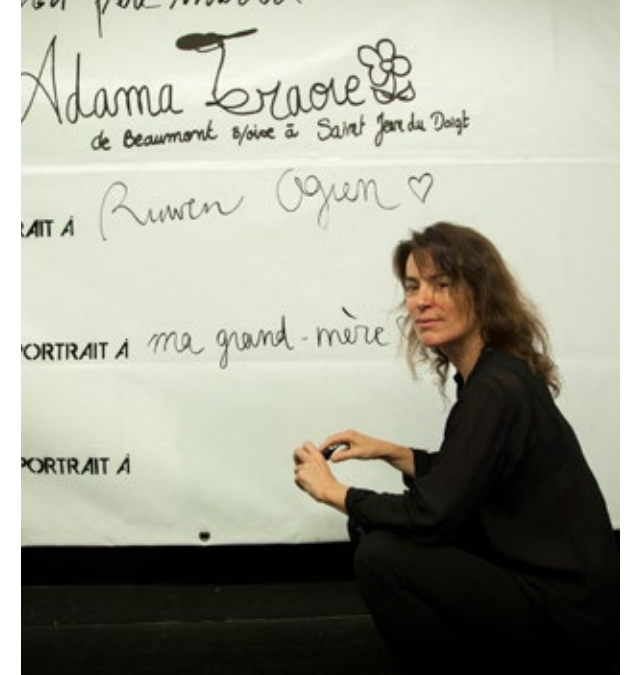 Adama Traore
de Beaumont s/oise à Saint Jean du Doigt
RAIT À Ruwen Ogien ♡
PORTRAIT À ma grand-mère
PORTRAIT À